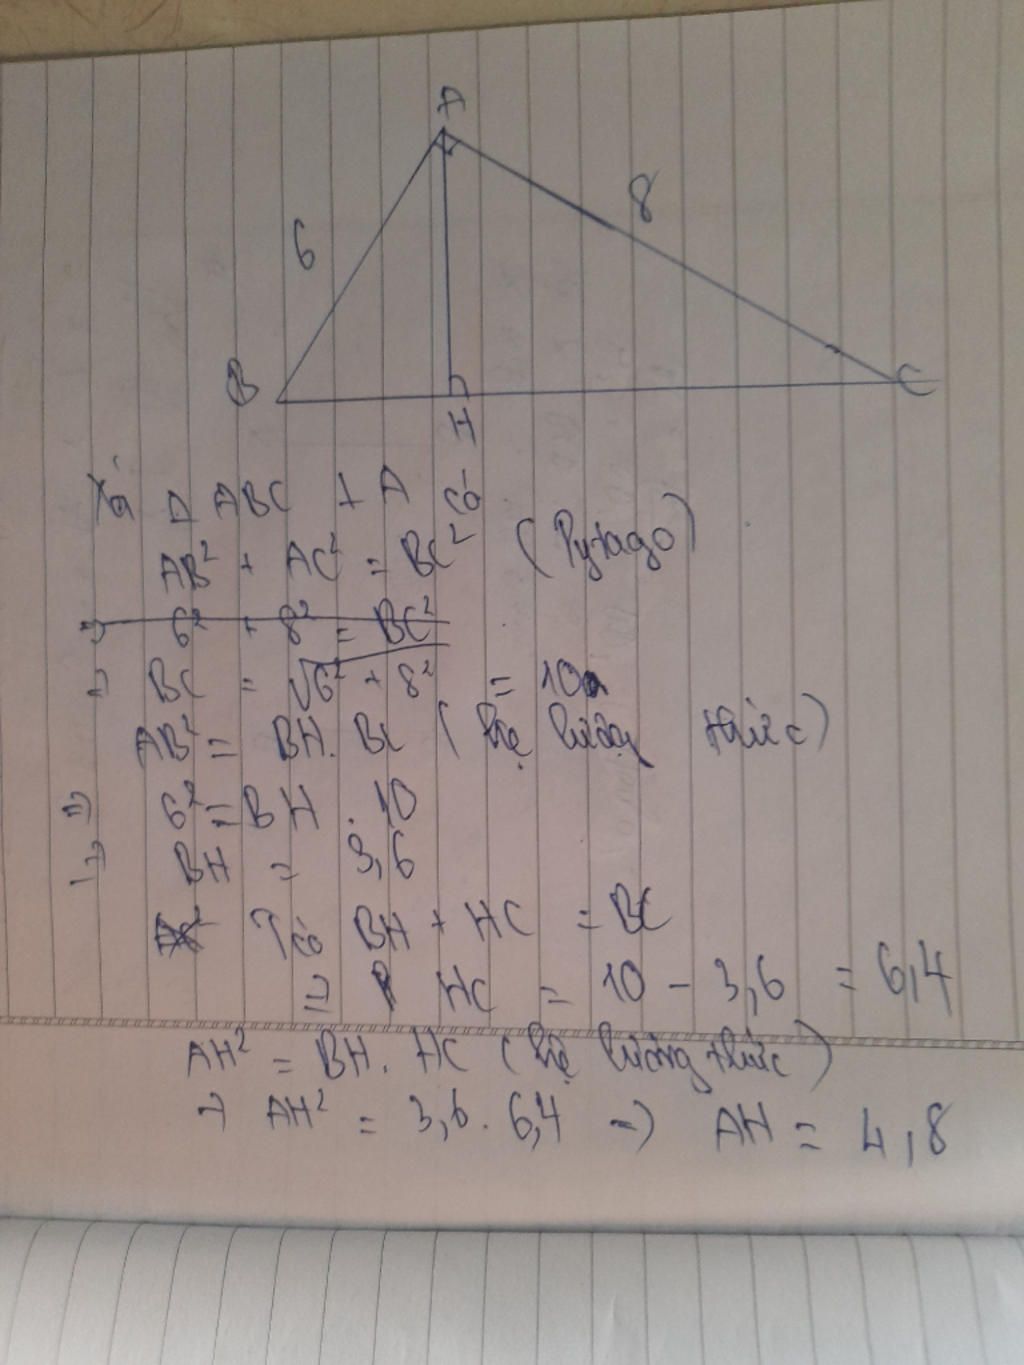 A
6
8
B
H
C
Xét Δ ABC ⊥ A có
AB² + AC² = BC² (Pytago)
⇒ 6² + 8² = BC²
⇒ BC = √6² + 8² = 10
AB² = BH. BC (hệ lượng thức)
⇒ 6² = BH . 10
⇒ BH = 3,6
Tcó BH + HC = BC
⇒ HC = 10 - 3,6 = 6,4
AH² = BH. HC (hệ lượng thức)
⇒ AH² = 3,6. 6,4 ⇒ AH = 4,8